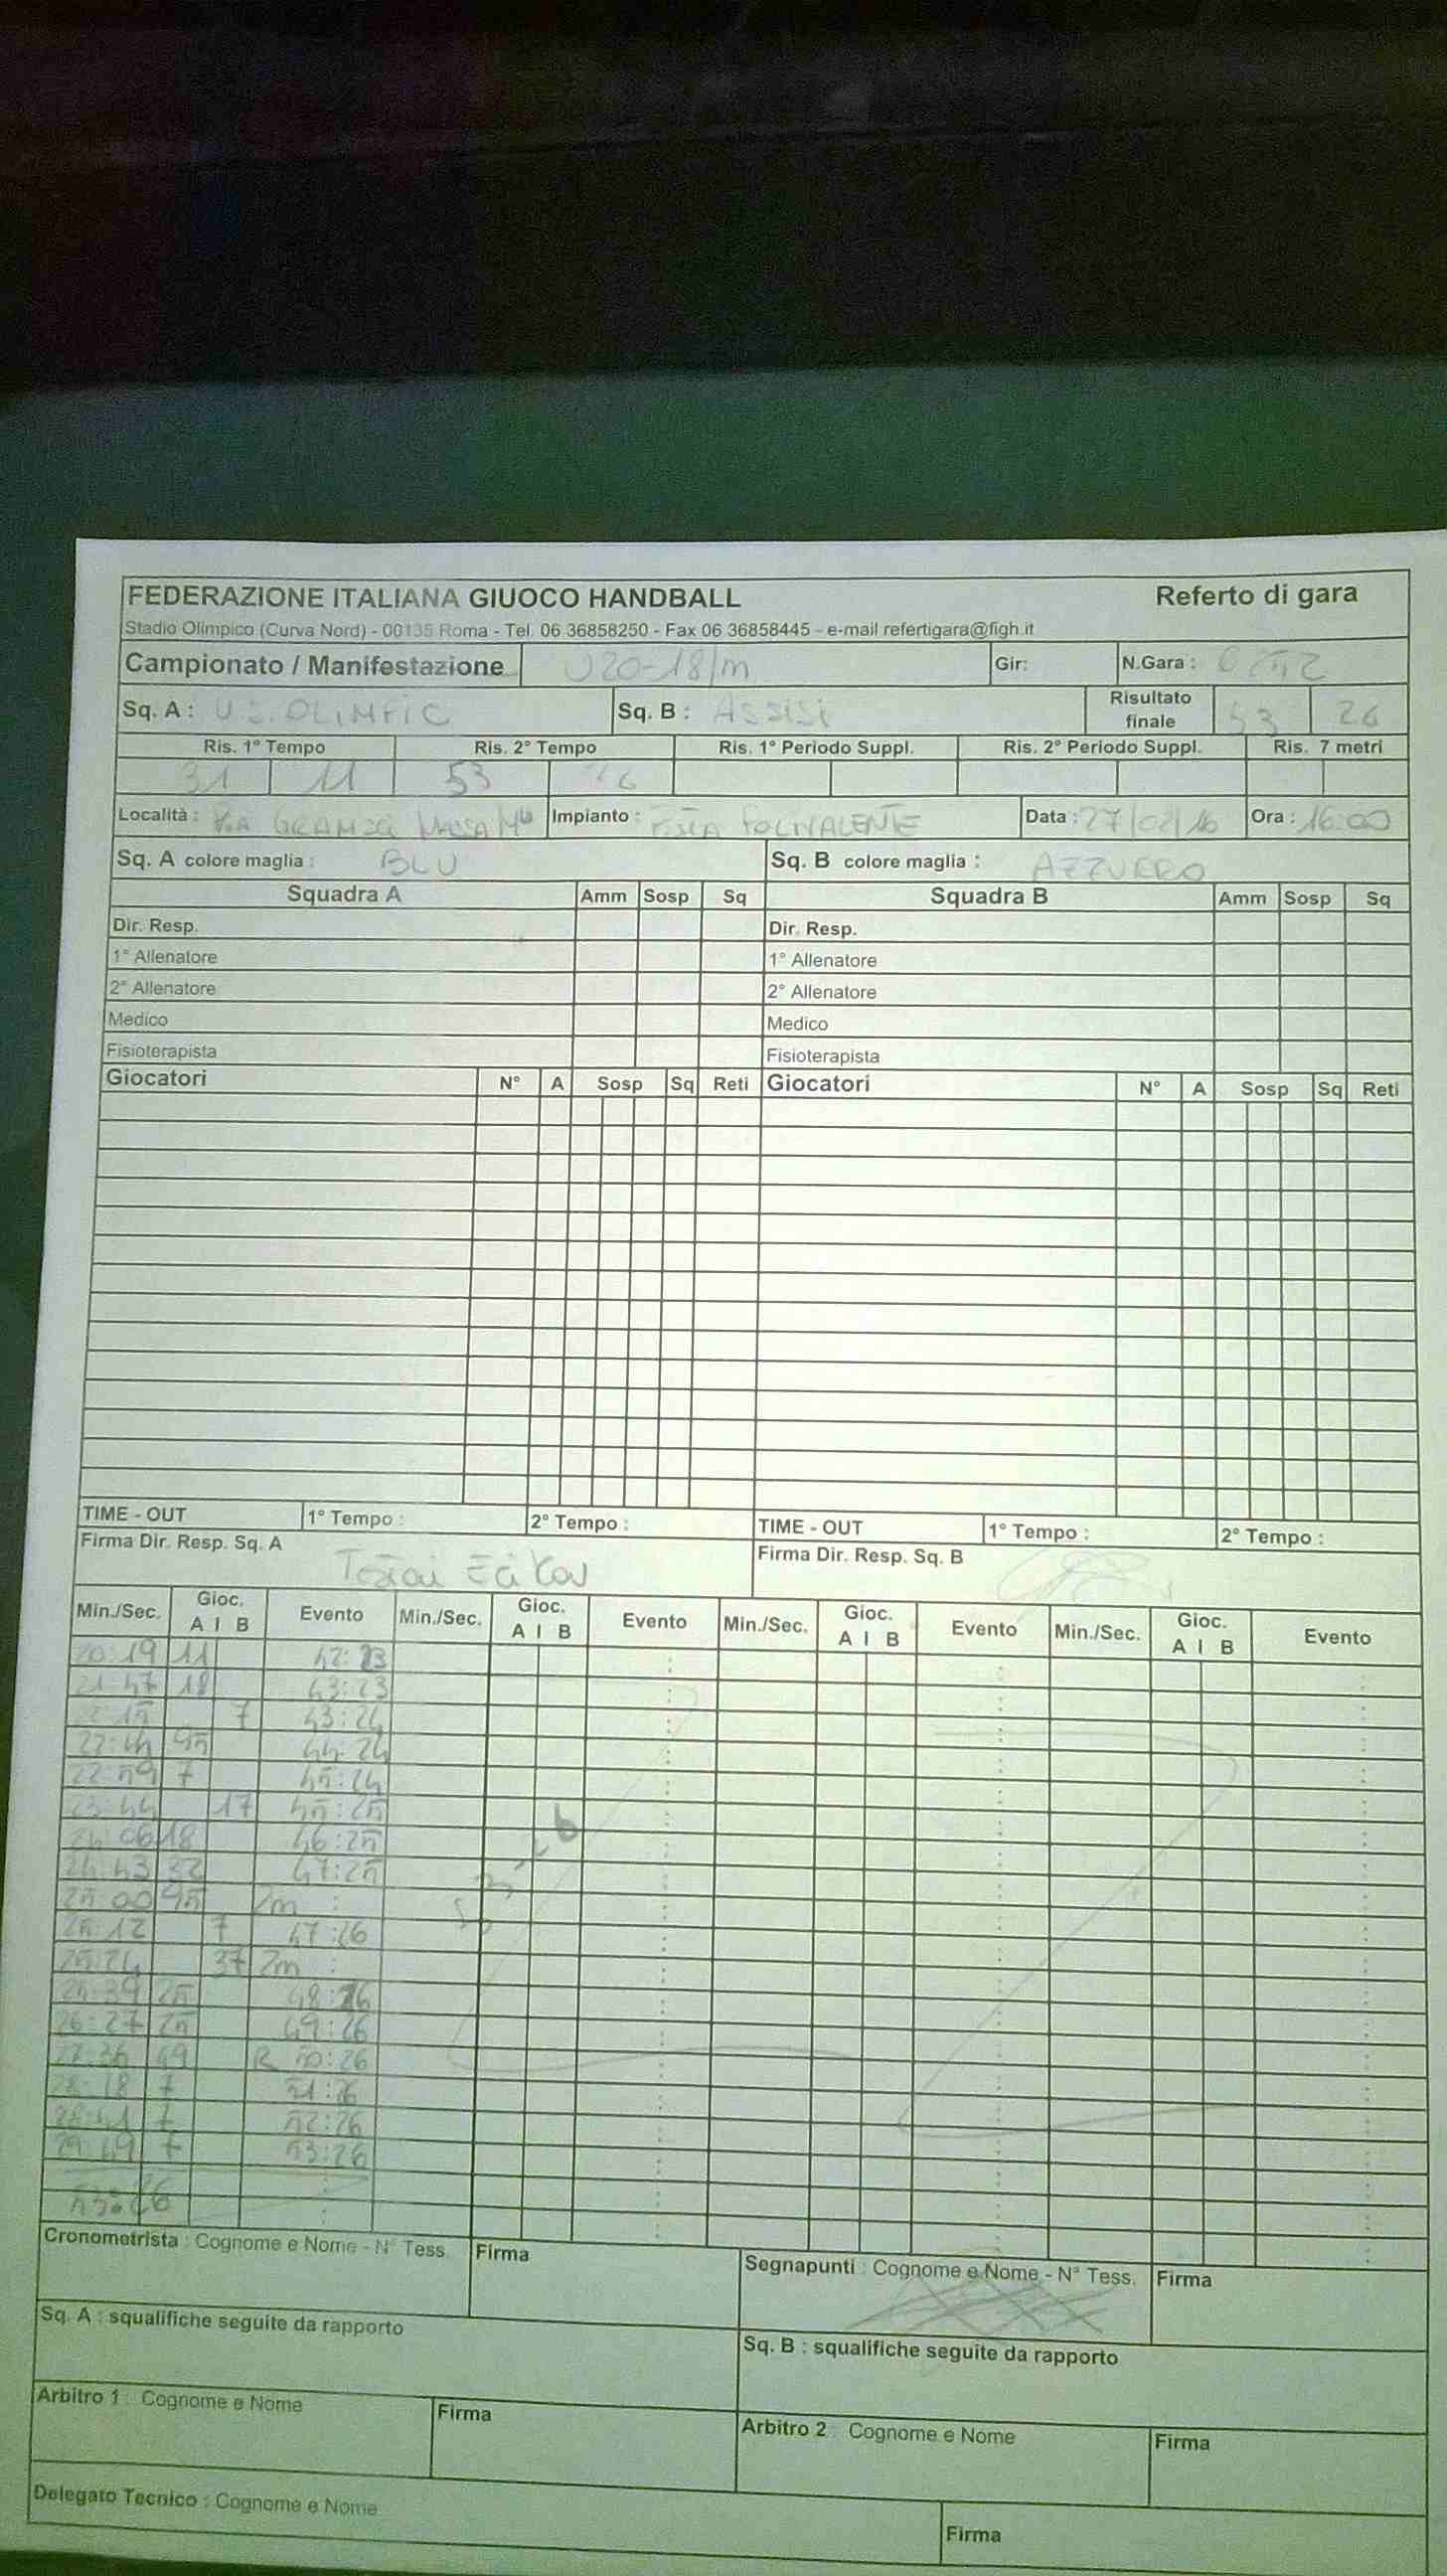 FEDERAZIONE ITALIANA GIUOCO HANDBALL Referto di gara
Stadio Olimpico (Curva Nord) - 00135 Roma - Tel. 06 36858250 - Fax 06 36858445 - e-mail refertigara@figh.it
Campionato / Manifestazione U20-18/m Gir: N.Gara :
Sq. A : U.S. OLIMPIC Sq. B : ASSISI Risultato finale 53 26
Ris. 1° Tempo Ris. 2° Tempo Ris. 1° Periodo Suppl. Ris. 2° Periodo Suppl. Ris. 7 metri
31 11 53 26
Località : VIA GRAMSCI Impianto : POLIVALENTE Data : 27/02/16 Ora : 16:00
Sq. A colore maglia : BLU Sq. B colore maglia : AZZURRO
Squadra A Amm Sosp Sq Squadra B Amm Sosp Sq
Dir. Resp. Dir. Resp.
1° Allenatore 1° Allenatore
2° Allenatore 2° Allenatore
Medico Medico
Fisioterapista Fisioterapista
Giocatori N° A Sosp Sq Reti Giocatori N° A Sosp Sq Reti
TIME - OUT 1° Tempo : 2° Tempo : TIME - OUT 1° Tempo : 2° Tempo :
Firma Dir. Resp. Sq. A Firma Dir. Resp. Sq. B
Min./Sec. Gioc. A I B Evento Min./Sec. Gioc. A I B Evento Min./Sec. Gioc. A I B Evento Min./Sec. Gioc. A I B Evento
20:19 11 42:23
21:47 18 43:23
7 43:24
22:44 45 44:24
22:59 7 45:24
23:44 17 45:25
24:06 18 46:25
24:43 32 47:25
25:00 45 2m :
25:12 7 47:26
25:24 37 2m :
25:39 25 48:26
26:27 25 49:26
27:36 49 R 50:26
28:18 7 51:26
28:41 7 52:26
29:49 7 53:26
53:26
Cronometrista : Cognome e Nome - N° Tess. Firma Segnapunti : Cognome e Nome - N° Tess. Firma
Sq. A : squalifiche seguite da rapporto Sq. B : squalifiche seguite da rapporto
Arbitro 1 : Cognome e Nome Firma Arbitro 2 : Cognome e Nome Firma
Delegato Tecnico : Cognome e Nome Firma